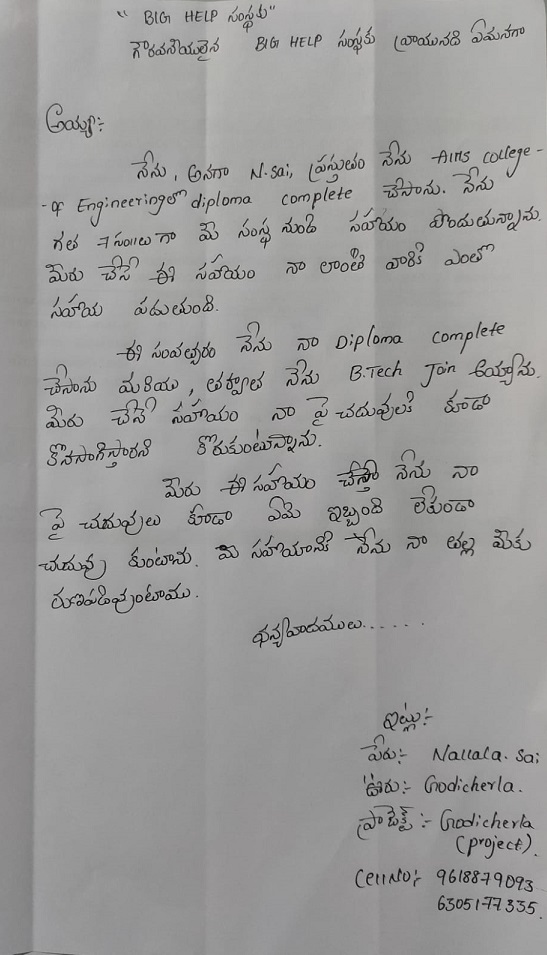 " BIG HELP సంస్థకు"
గౌరవనీయులైన BIG HELP సంస్థకు వ్రాయునది ఏమనగా
అయ్యా:-
నేను, అనగా N.sai, ప్రస్తుతం నేను AIMS college-
-of Engineeringలో diploma complete చేసాను. నేను
గత 7సం॥లు గా మీ సంస్థ నుండి సహాయం పొందుతున్నాను.
మీరు చేసే ఈ సహాయం నా లాంటి వారికి ఎంతో
సహాయ పడుతుంది.
ఈ సంవత్సరం నేను నా Diploma complete
చేసాను మరియు, తర్వాత నేను B.Tech Join అయ్యాను.
మీరు చేసే సహాయం నా పై చదువులకి కూడా
కొనసాగిస్తారని కోరుకుంటున్నాను.
మీరు ఈ సహాయం చేస్తే నేను నా
పై చదువులు కూడా ఏమి ఇబ్బంది లేకుండా
చదువు కుంటాను. మీ సహాయానికి నేను నా తల్లి మీకు
రుణపడివుంటాము.
ధన్యవాదములు......
ఇట్లు:-
పేరు:- Nallala. Sai
ఊరు:- Godicherla.
ప్రాజెక్ట్ :- Godicherla
(project).
Cell No:- 9618879093
6305177335.